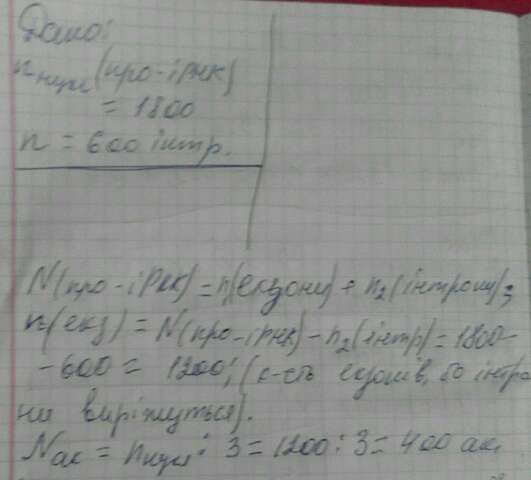 Дано:
n нукл (про-іРНК)
= 1800
n = 600 інтр.
N(про-іРНК) = n(екзони) + n₂(інтрони);
n(екз) = N(про-іРНК) - n₂(інтр) = 1800-
- 600 = 1200; (к-сть екзонів, бо інтро
ни виріжуться).
Nак = nнукл : 3 = 1200 : 3 = 400 ак.